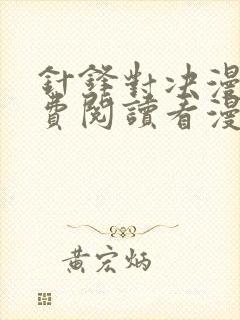 針鋒對决漫
費閱讀看漫
黃宏炳